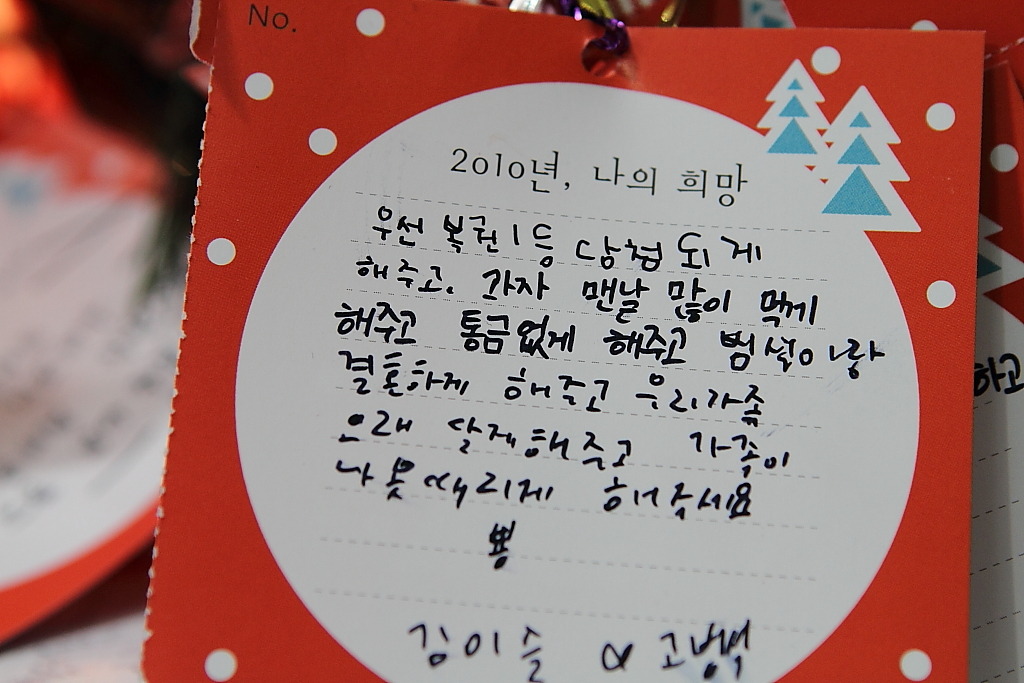 No.
2010년, 나의 희망
우선 복권 1등 당첨 되게
해주고. 과자 맨날 많이 먹게
해주고 통금없게 해주고 범석이랑
결혼하게 해주고 우리가족
오래 살게해주고 가족이
나 못때리게 해주세요
뿅
김이슬 &
하고